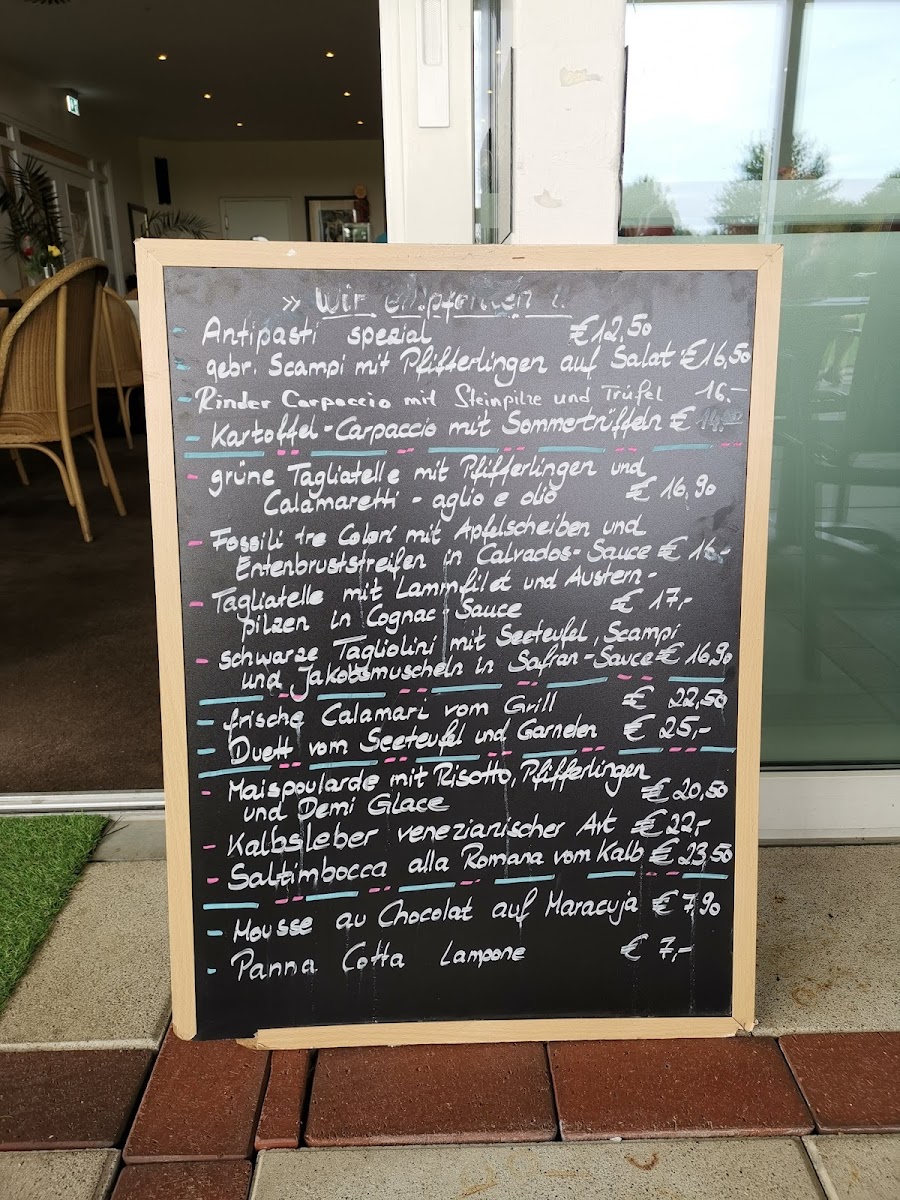 » Wir empfehlen !!
- Antipasti spezial €12,50
- gebr. Scampi mit Pfifferlingen auf Salat €16,50
- Rinder Carpaccio mit Steinpilze und Trüfel 16.-
- Kartoffel-Carpaccio mit Sommertrüffeln €
- grüne Tagliatelle mit Pfifferlingen und
Calamaretti - aglio e olio € 16,90
- Fossili tre Colori mit Apfelscheiben und
Entenbruststreifen in Calvados-Sauce € 16,-
- Tagliatelle mit Lammfilet und Austern-
pilzen in Cognac-Sauce € 17,-
- schwarze Tagliolini mit Seeteufel, Scampi
und Jakobsmuscheln in Safran-Sauce € 16,90
- frische Calamari vom Grill € 22,50
- Duett vom Seeteufel und Garnelen € 25,-
- Maispoularde mit Risotto, Pfifferlingen
und Demi Glace € 20,50
- Kalbsleber venezianischer Art € 22,-
- Saltimbocca alla Romana vom Kalb € 23,50
- Mousse au Chocolat auf Maracuja € 7,90
- Panna Cotta Lampone € 7,-